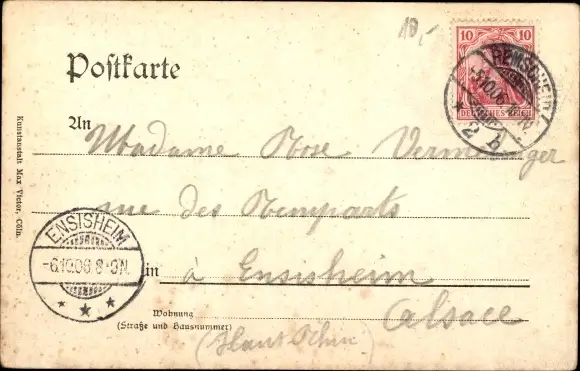 10,-
10 10
DEUTSCHES REICH
REMSCHEID
-5.10.06
* 2 b
Postkarte
An
Madame Rose
rue des Remparts
in à Ensisheim
Alsace
Wohnung
(Straße und Hausnummer)
(Haut Rhin)
ENSISHEIM
-6.10.06.8-9N.
* * *
Kunstanstalt Max Victor, Cöln.